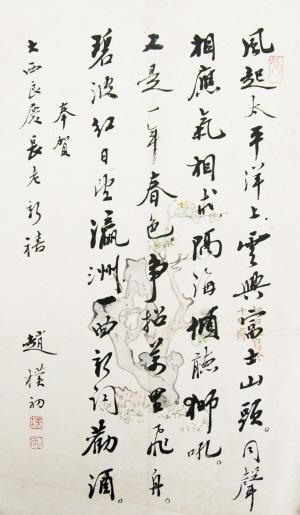 風起太平洋上雲興富士山頭。同聲
相應氣相求隔海傾聽獅吼。
又是一年春色爭招萬里飛舟。
碧波紅日望瀛洲一曲新詞勸酒。
奉賀
大西良慶長老新禧
趙樸初